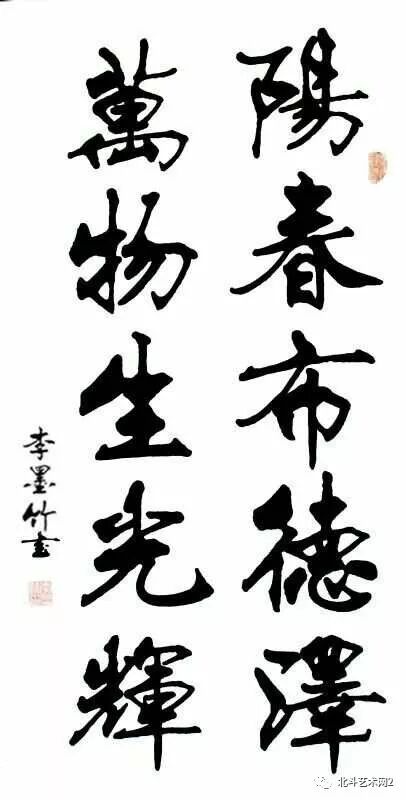 陽春布德澤
萬物生光輝
李墨竹書
北斗艺术网2